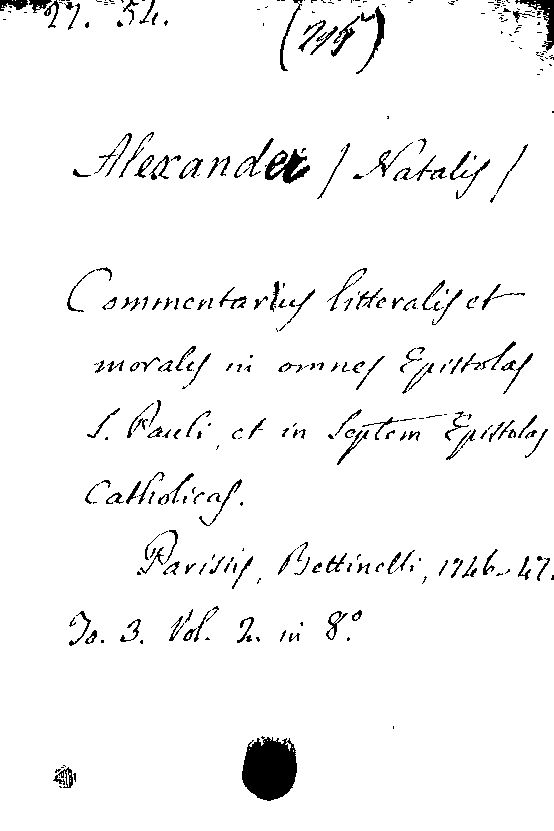 27. 54.
Alexander / Natalis /
Commentarius litteralis et
moralis in omnes Epistolas
S. Pauli, et in Septem Epistolas
Catholicas.
Parisiis, Bettinelli, 1746-47.
To. 3. Vol. 2. in 8.º